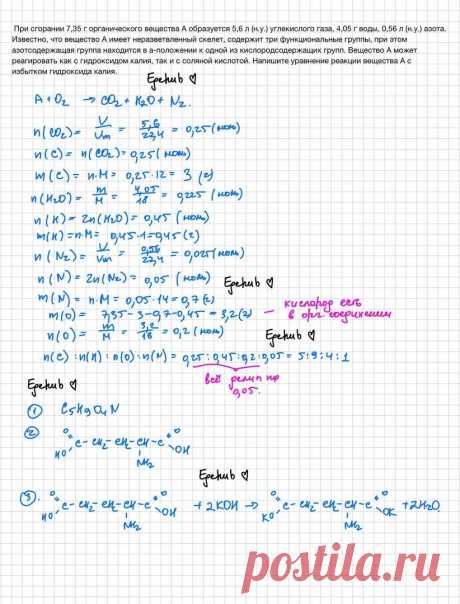 При сгорании 7,35 г органического вещества А образуется 5,6 л (н.у.) углекислого газа, 4,05 г воды, 0,56 л (н.у.) азота.
Известно, что вещество А имеет неразветвленный скелет, содержит три функциональные группы, при этом
азотсодержащая группа находится в а-положении к одной из кислородсодержащих групп. Вещество А может
реагировать как с гидроксидом калия, так и с соляной кислотой. Напишите уравнение реакции вещества А с
избытком гидроксида калия.
Ерекив ♡
A + O2 → CO2 + H2O + N2.
n(CO2) = V/Vm = 5,6/22,4 = 0,25 (моль)
n(C) = n(CO2) = 0,25 (моль)
m(C) = n·M = 0,25·12 = 3 (г)
n(H2O) = m/M = 4,05/18 = 0,225 (моль)
n(H) = 2n(H2O) = 0,45 (моль)
m(H) = n·M = 0,45·1 = 0,45 (г)
n(N2) = V/Vm = 0,56/22,4 = 0,025 (моль)
n(N) = 2n(N2) = 0,05 (моль)
Ерекив ♡
m(N) = n·M = 0,05·14 = 0,7 (г)
m(O) = 7,35-3-0,7-0,45 = 3,2 (г) — кислород есть
в орг. соединении
n(O) = m/M = 3,2/16 = 0,2 (моль)
Ерекив ♡
n(C) : n(H) : n(O) : n(N) = 0,25 : 0,45 : 0,2 : 0,05 = 5 : 9 : 4 : 1
всё делим на
0,05.
Ерекив ♡
① C5H9O4N
②
O O
C-CH2-CH2-CH-C
HO NH2 OH
Ерекив ♡
③.
O O O O
C-CH2-CH2-CH-C + 2KOH → C-CH2-CH2-CH-C + 2H2O
HO NH2 OH KO NH2 OK
posila.ru